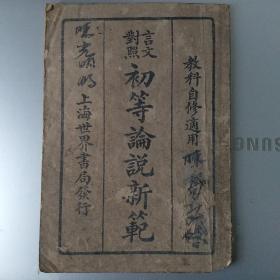 教科自修適用
言文
對照
初等論說新範
上海世界書局發行